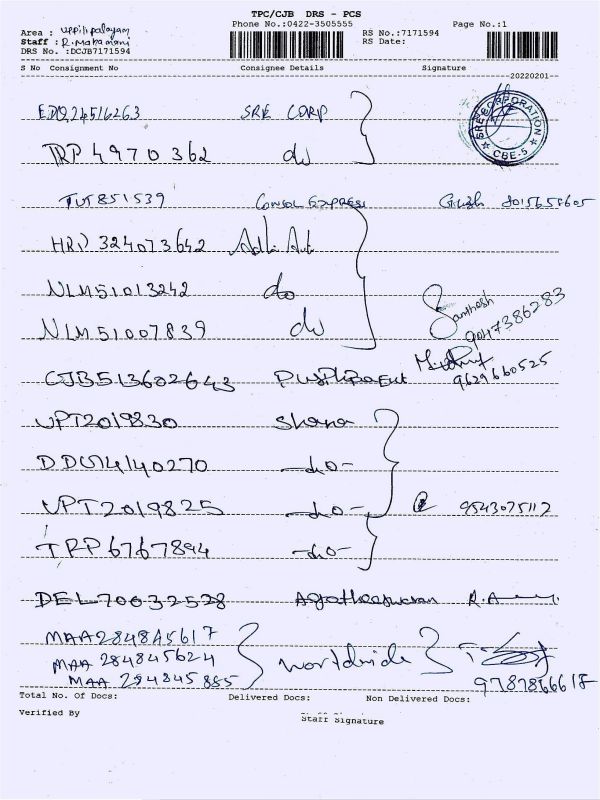 TPC/CJB DRS - PCS
Phone No.:0422-3505555 Page No.:1
Area : uppilipalayam
Staff : R.Mahamani
DRS No. :DCJB7171594
RS No.:7171594
RS Date:
S No Consignment No Consignee Details Signature
20220201
EDQ24516263 SRE CORP
SREE CORPORATION
★ CBE-5 ★
TRP 4970362 do
TUT851539 Consol Express 8015658605
HRD 324073642
NLM51013242 do
NLM51007839 do
Santhosh
9047386283
CJB513602643 9629660525
UPT2019830 Shana
DDU14140270 -do-
UPT2019825 -do- 9543075112
TRP6767894 -do-
DEL70632528 R.A
MAA284845617
MAA 284845624 worldwide
MAA 284845885
Total No. Of Docs: Delivered Docs: Non Delivered Docs:
Verified By Staff Signature